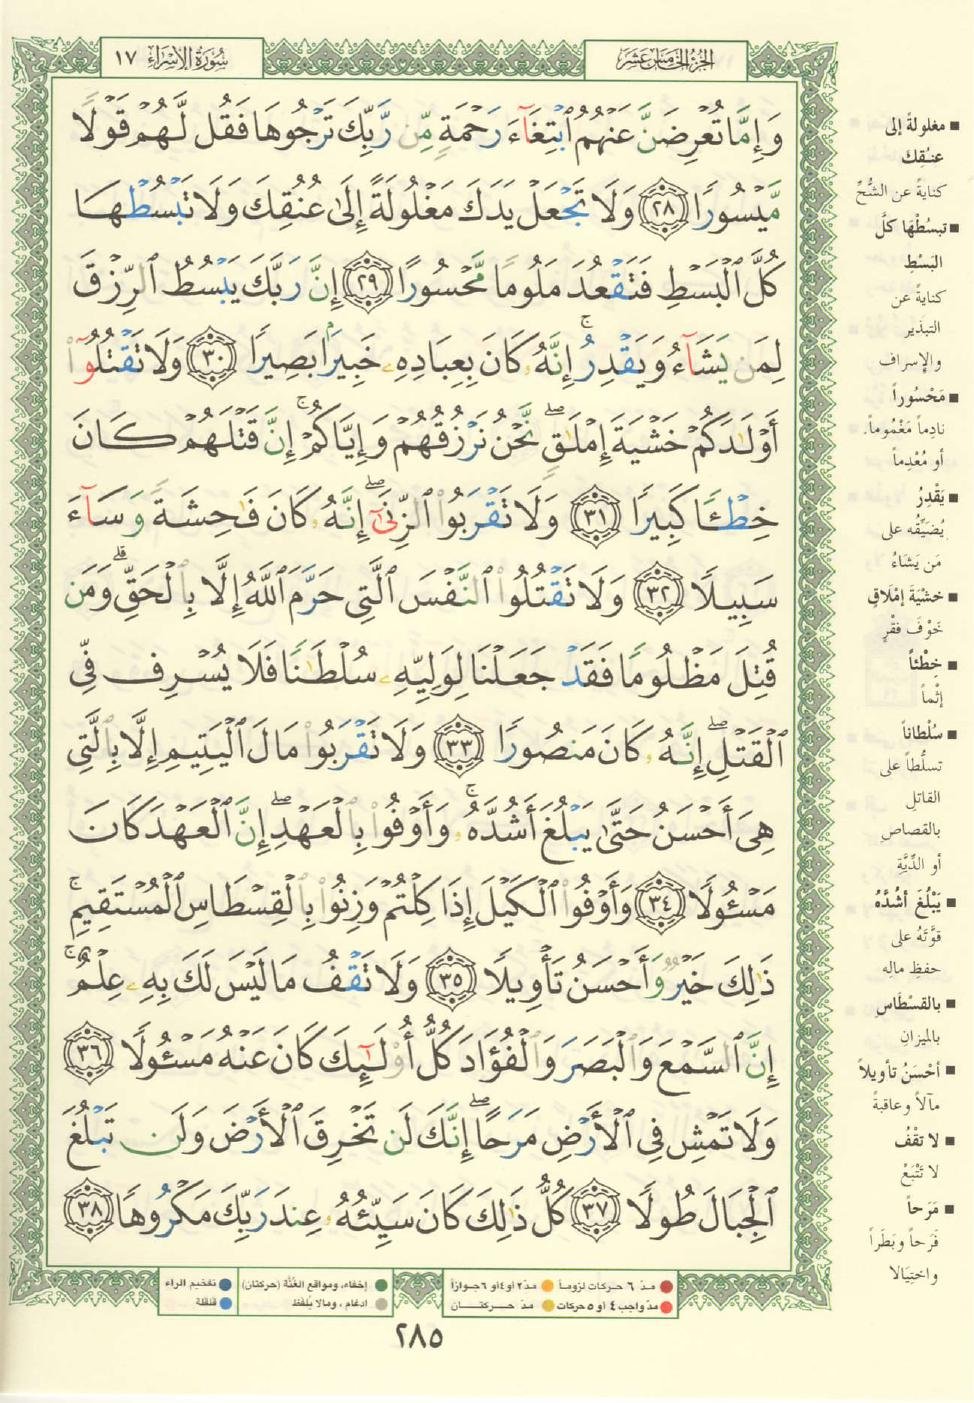 الجزء الخامس عشر
سورة الإسراء ١٧
وَإِمَّا تُعْرِضَنَّ عَنْهُمُ ٱبْتِغَآءَ رَحْمَةٍ مِّن رَّبِّكَ تَرْجُوهَا فَقُل لَّهُمْ قَوْلًا
مَّيْسُورًا ٢٨ وَلَا تَجْعَلْ يَدَكَ مَغْلُولَةً إِلَىٰ عُنُقِكَ وَلَا تَبْسُطْهَا
كُلَّ ٱلْبَسْطِ فَتَقْعُدَ مَلُومًا مَّحْسُورًا ٢٩ إِنَّ رَبَّكَ يَبْسُطُ ٱلرِّزْقَ
لِمَن يَشَآءُ وَيَقْدِرُ ۚ إِنَّهُۥ كَانَ بِعِبَادِهِۦ خَبِيرًۢا بَصِيرًا ٣٠ وَلَا تَقْتُلُوٓا۟
أَوْلَٰدَكُمْ خَشْيَةَ إِمْلَٰقٍ ۖ نَّحْنُ نَرْزُقُهُمْ وَإِيَّاكُمْ ۚ إِنَّ قَتْلَهُمْ كَانَ
خِطْـًٔا كَبِيرًا ٣١ وَلَا تَقْرَبُوا۟ ٱلزِّنَىٰٓ ۖ إِنَّهُۥ كَانَ فَٰحِشَةً وَسَآءَ
سَبِيلًا ٣٢ وَلَا تَقْتُلُوا۟ ٱلنَّفْسَ ٱلَّتِى حَرَّمَ ٱللَّهُ إِلَّا بِٱلْحَقِّ ۗ وَمَن
قُتِلَ مَظْلُومًا فَقَدْ جَعَلْنَا لِوَلِيِّهِۦ سُلْطَٰنًا فَلَا يُسْرِف فِّى
ٱلْقَتْلِ ۖ إِنَّهُۥ كَانَ مَنصُورًا ٣٣ وَلَا تَقْرَبُوا۟ مَالَ ٱلْيَتِيمِ إِلَّا بِٱلَّتِى
هِىَ أَحْسَنُ حَتَّىٰ يَبْلُغَ أَشُدَّهُۥ ۚ وَأَوْفُوا۟ بِٱلْعَهْدِ ۖ إِنَّ ٱلْعَهْدَ كَانَ
مَسْـُٔولًا ٣٤ وَأَوْفُوا۟ ٱلْكَيْلَ إِذَا كِلْتُمْ وَزِنُوا۟ بِٱلْقِسْطَاسِ ٱلْمُسْتَقِيمِ ۚ
ذَٰلِكَ خَيْرٌ وَأَحْسَنُ تَأْوِيلًا ٣٥ وَلَا تَقْفُ مَا لَيْسَ لَكَ بِهِۦ عِلْمٌ ۚ
إِنَّ ٱلسَّمْعَ وَٱلْبَصَرَ وَٱلْفُؤَادَ كُلُّ أُو۟لَٰٓئِكَ كَانَ عَنْهُ مَسْـُٔولًا ٣٦
وَلَا تَمْشِ فِى ٱلْأَرْضِ مَرَحًا ۖ إِنَّكَ لَن تَخْرِقَ ٱلْأَرْضَ وَلَن تَبْلُغَ
ٱلْجِبَالَ طُولًا ٣٧ كُلُّ ذَٰلِكَ كَانَ سَيِّئُهُۥ عِندَ رَبِّكَ مَكْرُوهًا ٣٨
■ مغلولةً إلى
عنقِك
كنايةً عن الشُّحِّ
■ تبسُطْهَا كلَّ
البَسْطِ
كنايةً عن
التبذير
والإسراف
■ مَحْسُوراً
نادِماً مَغْمُوماً.
أو مُعْدِماً
■ يَقْدِرُ
يُضَيِّقُه على
مَن يَشَاءُ
■ خشيَةَ إمْلَاقٍ
خَوْفَ فَقْرٍ
■ خِطْئاً
إثْماً
■ سُلْطاناً
تسلُّطاً على
القاتلِ
بالقصاصِ
أو الدِّيَّةِ
■ يَبْلُغَ أشُدَّهُ
قوَّتَهُ على
حفظِ مالِه
■ بالقسْطَاسِ
بالميزانِ
■ أحْسَنُ تأويلاً
مآلاً وعاقبةً
■ لا تَقْفُ
لا تَتْبَعْ
■ مَرَحاً
فَرَحاً وبَطَراً
واختِيَالا
مدّ ٦ حركات لزوماً
مدّ ٢ أو ٤ أو ٦ جوازاً
إخفاء، ومواقع الغُنَّة (حركتان)
تفخيم الراء
مدّ واجب ٤ أو ٥ حركات
مدّ حركتان
ادغام، وما لا يُلفَظ
قلقلة
٢٨٥